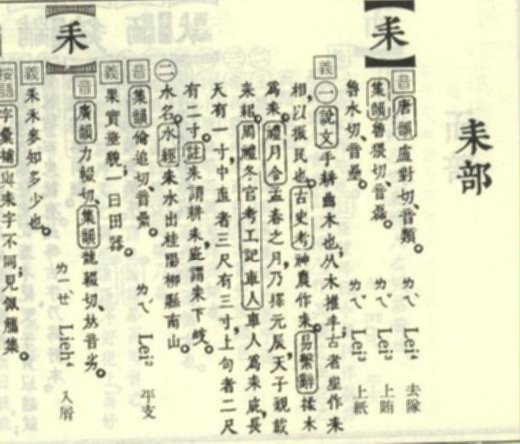 耒部
【耒】
音 唐韻盧對切、音類。 ㄌㄟˋ Lei⁴ 去隊
集韻魯猥切、音磊。 ㄌㄟˇ Lei³ 上賄
魯水切、音壘。 ㄌㄟˇ Lei³ 上紙
義 ㊀說文手耕曲木也、从木推丰、古者垂作耒
相以振民也。古史考神農作耒。易繫辭揉木
爲耒。禮月令孟春之月乃擇元辰、天子親載
耒耜。周禮冬官考工記車人車人爲耒庛長
尺有一寸、中直者三尺有三寸、上句者二尺
有二寸。註耒謂耕耒庛謂耒下岐。
㊁水名。水經耒水出桂陽郴縣南山。
音 集韻倫追切、音纍。 ㄌㄟˊ Lei² 平支
義 果實垂貌、一曰田器。
音 廣韻力輟切、集韻龍輟切、𠀤音劣。 ㄌㄧㄝˋ Lieh⁴ 入屑
義 耒耒多知多少也。
按語 字彙補與耒字不同、見佩觿集。